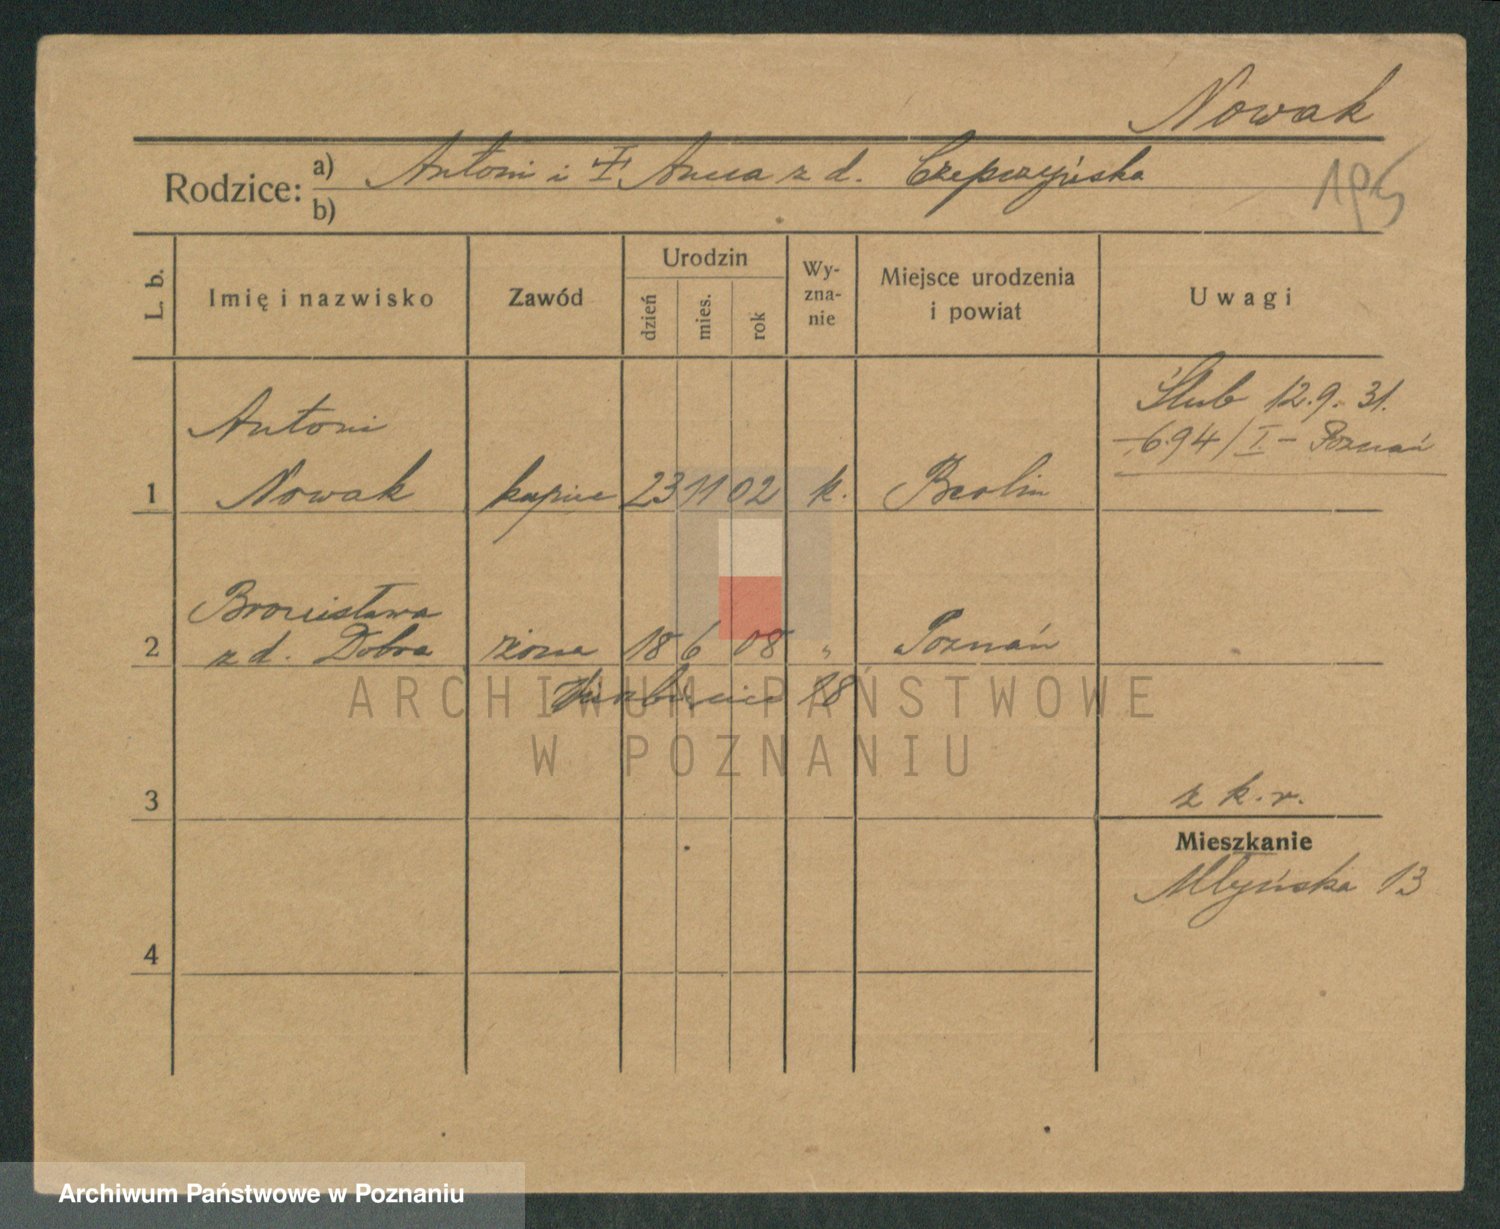 Nowak
Rodzice: a) Antoni i † Anna z d. Czepczyńska
b)
195
L. b. Imię i nazwisko Zawód Urodzin dzień mies. rok Wy-zna-nie Miejsce urodzenia i powiat Uwagi
Ślub 12.9.31.
694/I – Poznań
Antoni
1 Nowak kupiec 23 11 02 k. Berlin
Bronisława
2 z d. Dobra żona 18 6 08 " Poznań
18
ARCHIWUM PAŃSTWOWE
W POZNANIU
3 z k. r.
Mieszkanie
Młyńska 13
4
Archiwum Państwowe w Poznaniu